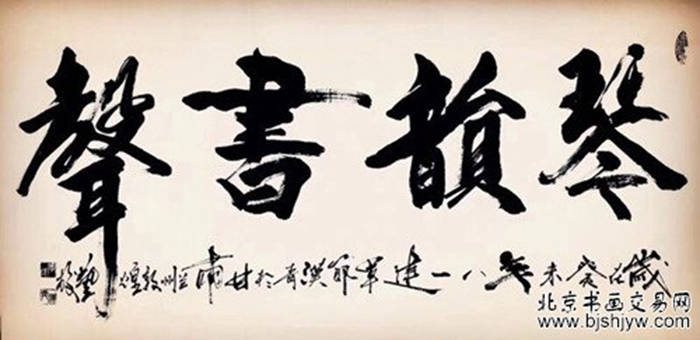 琴韻書聲
歲在癸未年八一建軍節於甘肅蘭州敦煌藝
北京书画交易网
www.bjshjyw.com